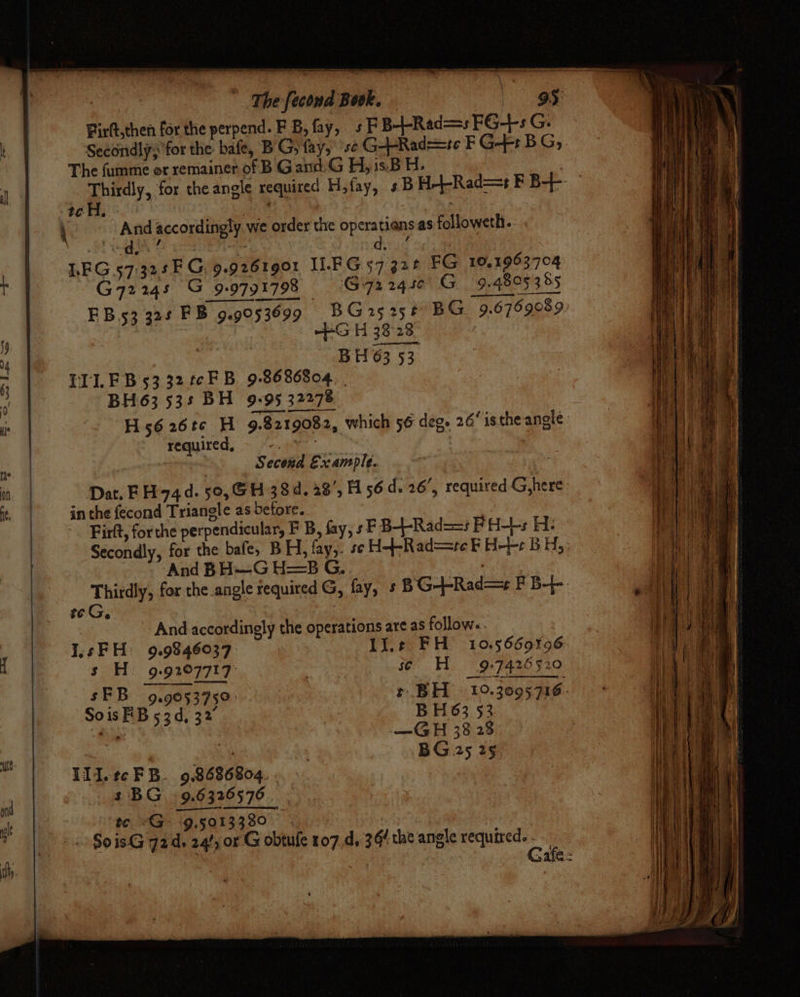 The ſecond Book. 95
Firſt, then for the perpend. F B, ſay, s F B+Rad=s FG+s G.
Secondly, for the baſe, B G, ſay, sc G+Rad=tc F G+t B G,
The ſumme or remainer of B G and G H, is B H.
Thirdly, for the angle required H, ſay, s B H+Rad=t F B+
tc H.
And accordingly we order the operations as followeth.
d. d.
I. FG 57 32 s F G 9.9261901 II. F G 57 32 t FG 10.1963704
G 72 24 s G 9.9791798 G 72 24 sc G 9.4805385
F B 53 32 s F B 9.9053699 B G 25 25 t BG 9.6769089
+G H 38 28
B H 63 53
III. F B 53 32 tc F B 9.8686804
BH 63 53 s BH 9.95 32278
H 56 26 tc H 9.8219082, which 56 deg. 26′ is the angle
required.
Second Example.
Dat. F H 74 d. 50, G H 38 d. 28′, H 56 d. 26′, required G, here
in the ſecond Triangle as before.
Firſt, for the perpendicular, F B, ſay, s F B+Rad=s F H+s H.
Secondly, for the baſe, B H, ſay, sc H+Rad=tc F H+t B H,
And B H—G H=B G.
Thirdly, for the angle required G, ſay, s B G+Rad=t F B+
tc G.
And accordingly the operations are as follow.
I. s F H 9.9846037 II. t F H 10.5669196
s H 9.9207717 sc H 9.7426520
s F B 9.9053750 t B H 10.3095716
So is F B 53 d. 32′ B H 63 53
—G H 38 28
B G 25 25
III. tc F B 9.8686804
s B G 9.6326576
tc G 9.5013380
So is G 72 d. 24′, or G obtuſe 107 d. 36′ the angle required.
Caſe